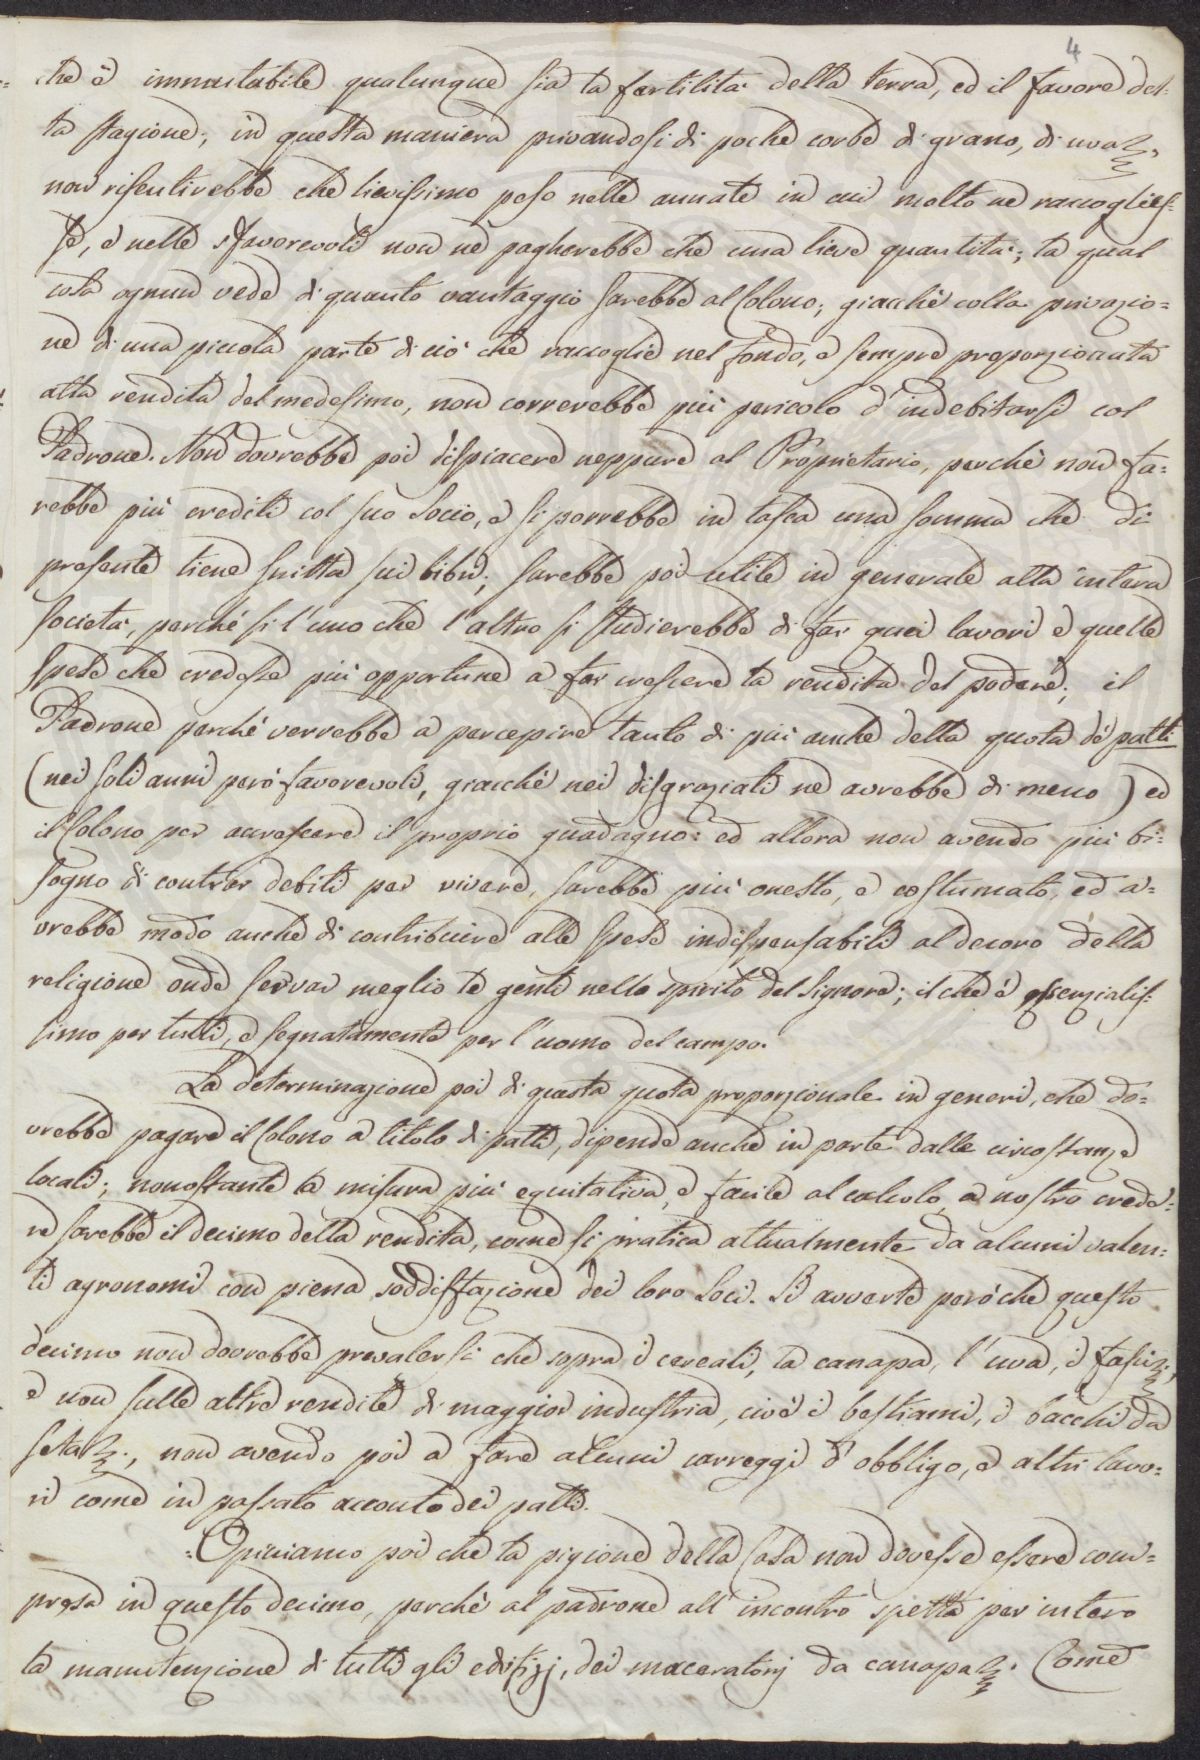 4
che è immutabile qualunque sia la fertilità della terra, ed il favore del-
la stagione; in questa maniera privandosi di poche corbe di grano, di uva &,
non risentirebbe che lievissimo peso nelle annate in cui molto ne raccoglies-
se, e nelle sfavorevoli non ne pagherebbe che una lieve quantità; la qual
cosa ognun vede di quanto vantaggio sarebbe al Colono; giacchè colla privazio=
ne di una piccola parte di ciò che raccoglie nel fondo, e sempre proporzionata
alla rendita del medesimo, non correrebbe più pericolo d'indebitarsi col
Padrone. Non dovrebbe poi dispiacere neppure al Proprietario, perchè non fa=
rebbe più crediti col suo Socio, e si porrebbe in tasca una somma che di
presente tiene scritta sui libri; sarebbe poi utile in generale alla intera
società, perchè sì l'uno che l'altro si studierebbe di far quei lavori e quelle
spese che credesse più opportune a far crescere la rendita del podere; il
Padrone perchè verrebbe a percepire tanto di più anche della quota de' patti
(nei soli anni però favorevoli, giacchè nei disgraziati ne avrebbe di meno) ed
il Colono per accrescere il proprio guadagno: ed allora non avendo più bi=
sogno di contrar debiti per vivere, sarebbe più onesto, e costumato, ed a=
vrebbe modo anche di contribuire alle spese indispensabili al decoro della
religione onde servar meglio le genti nello spirito del Signore; il che è essenzialis-
simo per tutti, e segnatamente per l'uomo del campo.
La determinazione poi di questa quota proporzionale in generi, che do=
vrebbe pagare il Colono a titolo di patti, dipende anche in parte dalle circostanze
locali; nonostante la misura più equitativa, e facile al calcolo, a nostro crede=
re sarebbe il decimo della rendita, come si pratica attualmente da alcuni valen=
ti agronomi con piena soddisfazione dei loro Soci. Si avverte però che questo
decimo non dovrebbe prevalersi che sopra i cereali, la canapa, l'uva, i fasci &,
e non sulle altre rendite di maggior industria, cioè i bestiami, i bacchi da
seta &., non avendo poi a fare alcuni carreggi d'obbligo, e altri lavo=
ri come in passato acconto dei patti.
Opiniamo poi che la pigione della Casa non dovesse essere com=
presa in questo decimo, perchè al padrone all'incontro spetta per intero
la manutenzione di tutti gli edifizj, dei maceratorj da canapa &. Come